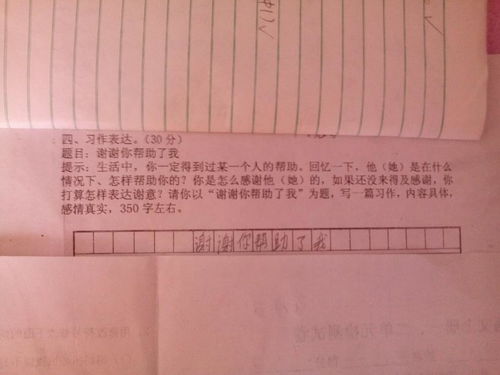 四、习作表达。(30分)
题目：谢谢你帮助了我
提示：生活中，你一定得到过某一个人的帮助。回忆一下，他（她）是在什么
情况下、怎样帮助你的？你是怎么感谢他（她）的，如果还没来得及感谢，你
打算怎样表达谢意？请你以“谢谢你帮助了我”为题，写一篇习作，内容具体，
感情真实，350字左右。
谢谢你帮助了我